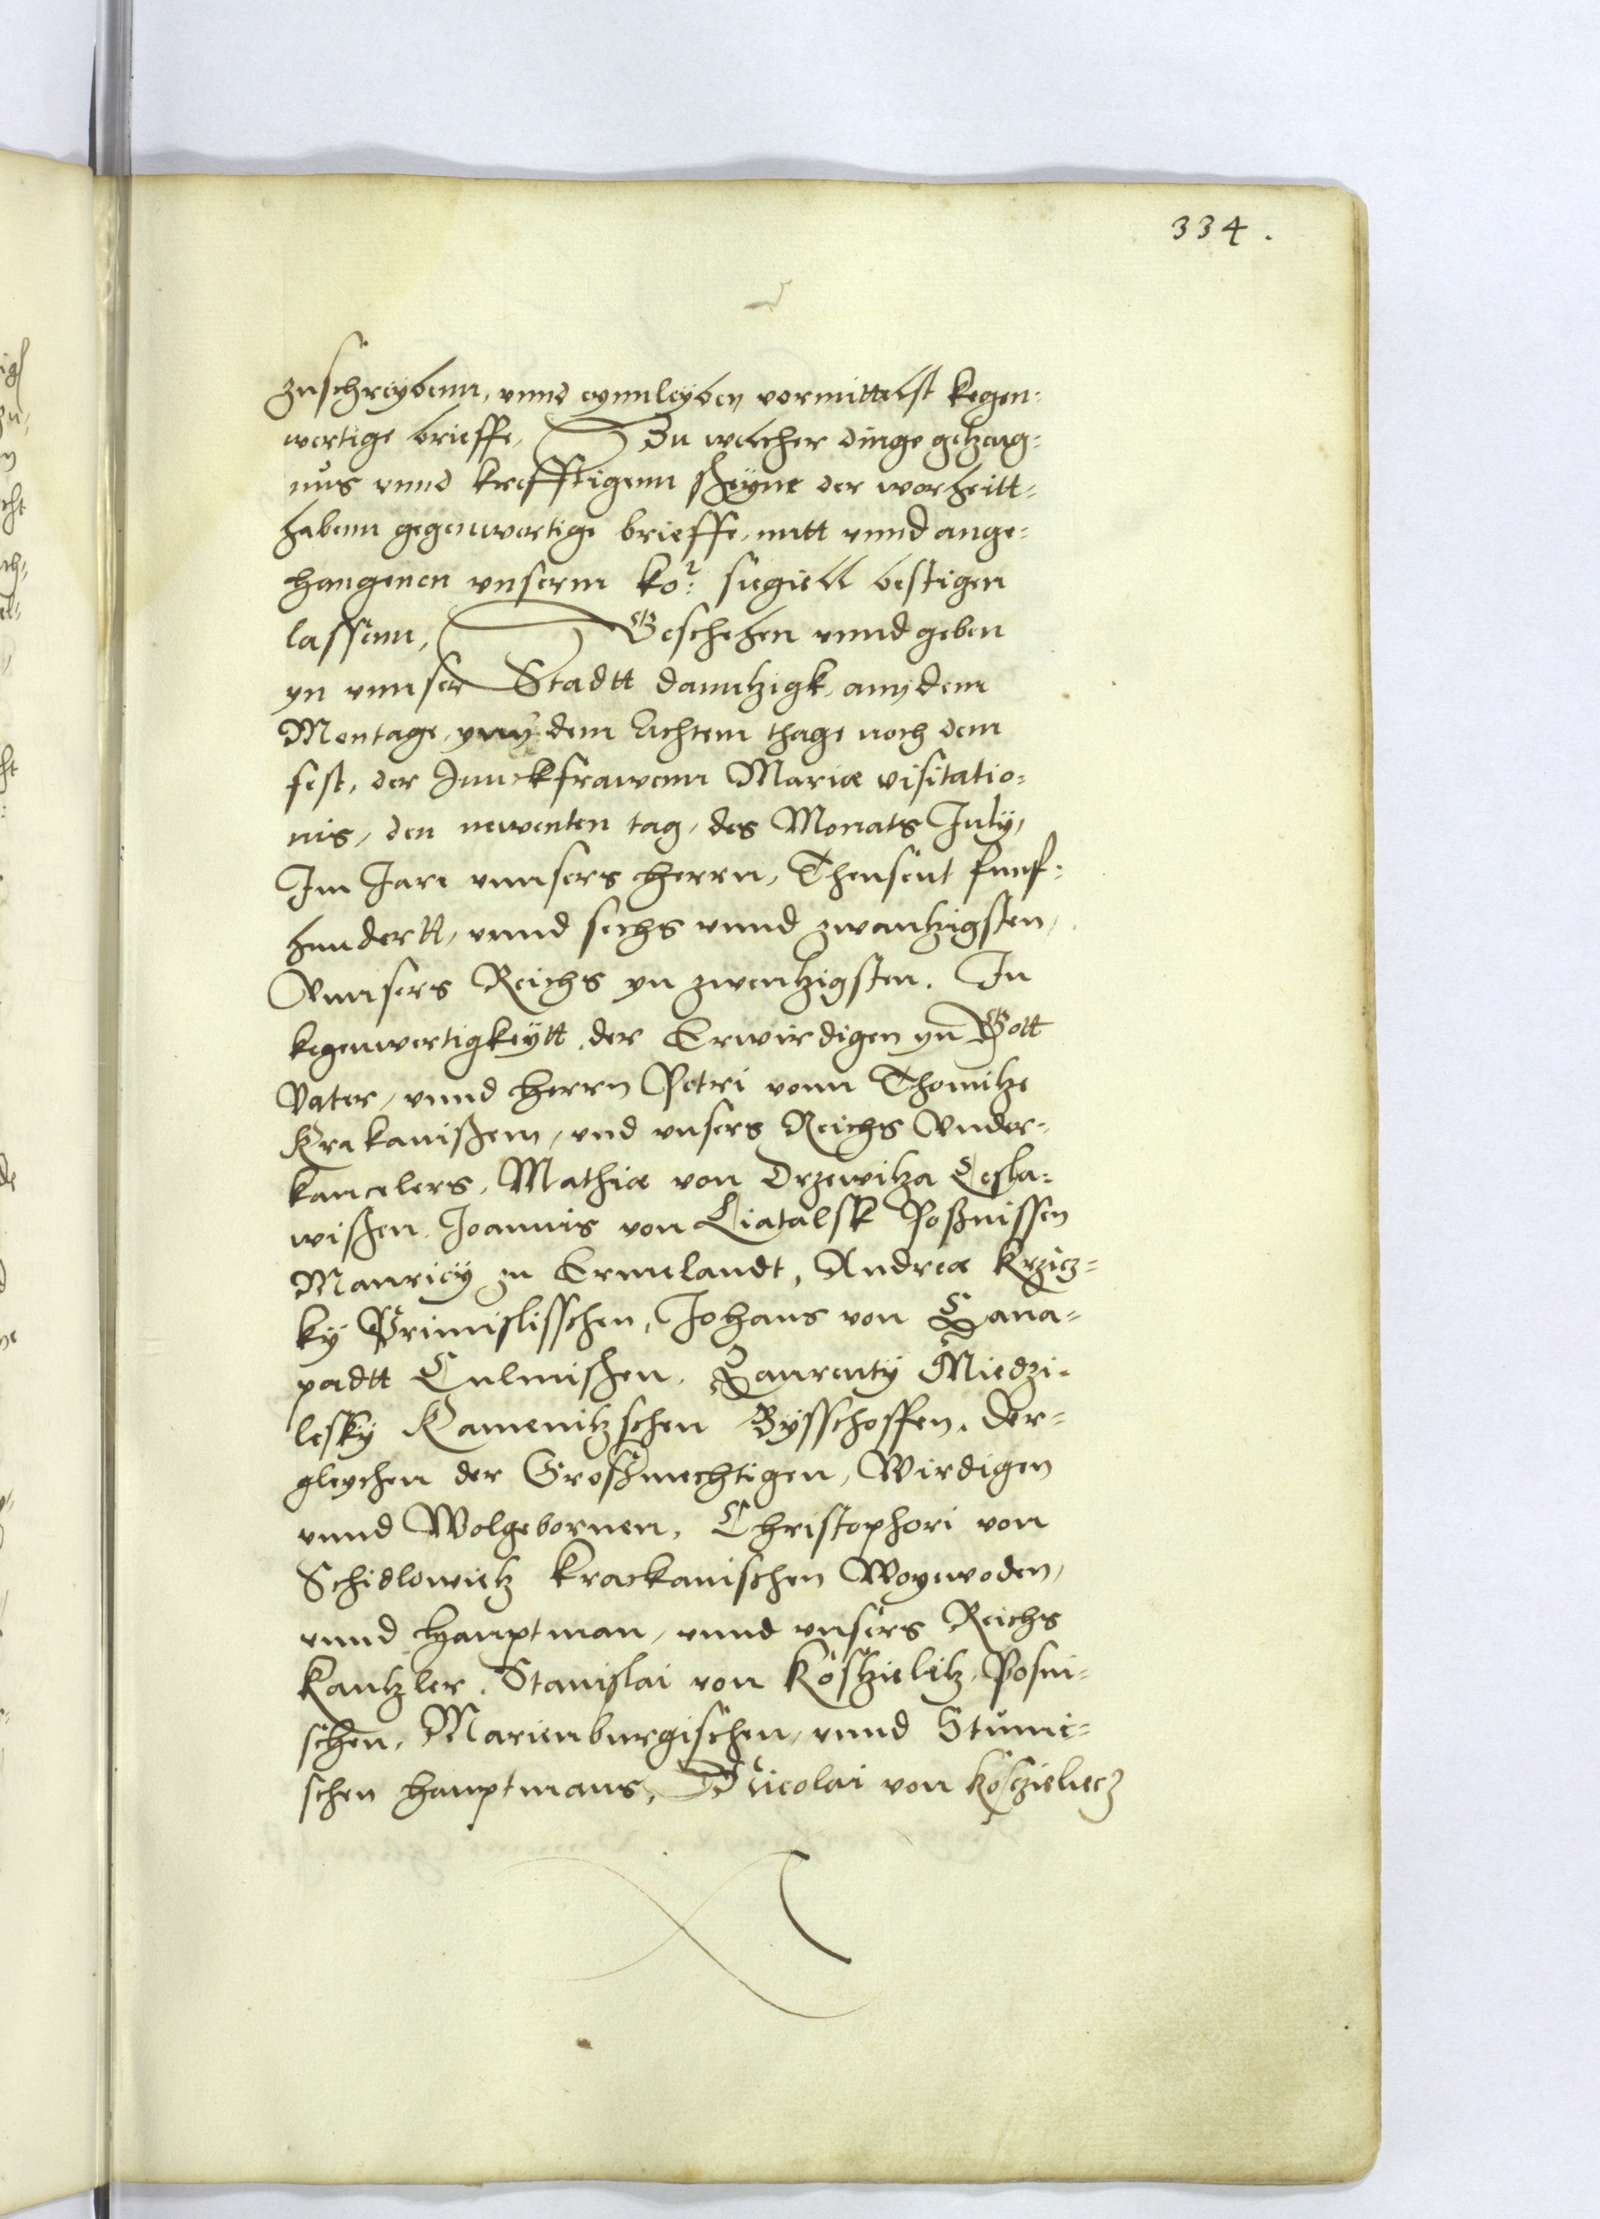 334.
zuschreybenn, vnnd eynnleyben vormittelst kegen=
wertige brieffe, Zu welcher dinge getzeug=
nus vnnd krefftigenn scheyne der warheitt=
habenn gegenwertige brieffe, mitt vnnd ange=
hangenen vnserm ko: siegiell bestigen
lassenn, Geschehen vnnd geben
yn vnnser Stadtt danntzigk, am dem
Montage, ynn dem Achtem thage noch dem
fest, der Junckfrawenn Mariæ visitatio=
nis, den neventen tag, des Monats July,
Im Jare vnnsers Herrn, Thensent funf=
hundertt, vnnd sechs vnnd zwantzigsten,
Vnnsers Reichs yn zwentzigsten. In
kegenwertigkeytt der Erwirdigen yn Gott
Vater, vnnd Herrn Petri vonn Thomitze
Krakauischem, vnd vnsers Reichs Vnder=
kancelers, Mathiæ von Drzewitza Lesla=
wischen, Joannis von Liatalsk Poßnissen
Mauricÿ zu Ermelandt, Andreæ Krzicz=
kÿ Primislisschen, Johans von Cana=
padtt Culmischen, Laurentÿ Miedzi=
leskÿ Kamenitzschen Bysschoffen. der=
gleychen der Großmechtigen, Wirdigen
vnnd Wolgebornen, Christophori von
Schidlowietz Krackauischen Woywoden,
vnnd Hauptman, vnnd vnsers Reichs
Kantzler, Stanislai von Koschielitz, Posni=
schen, Marienburgischen, vnnd Stumi=
schen Hauptmans, Nicolai von Kosczieliecz